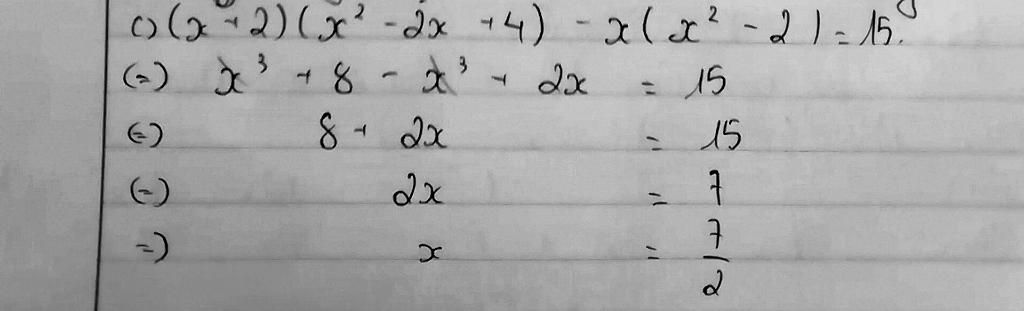 c) (x + 2) (x² - 2x + 4) - x ( x² - 2 ) = 15.
(=) x³ + 8 - x³ + 2x = 15
(=) 8 + 2x = 15
(=) 2x = 7
=) x = 7/2